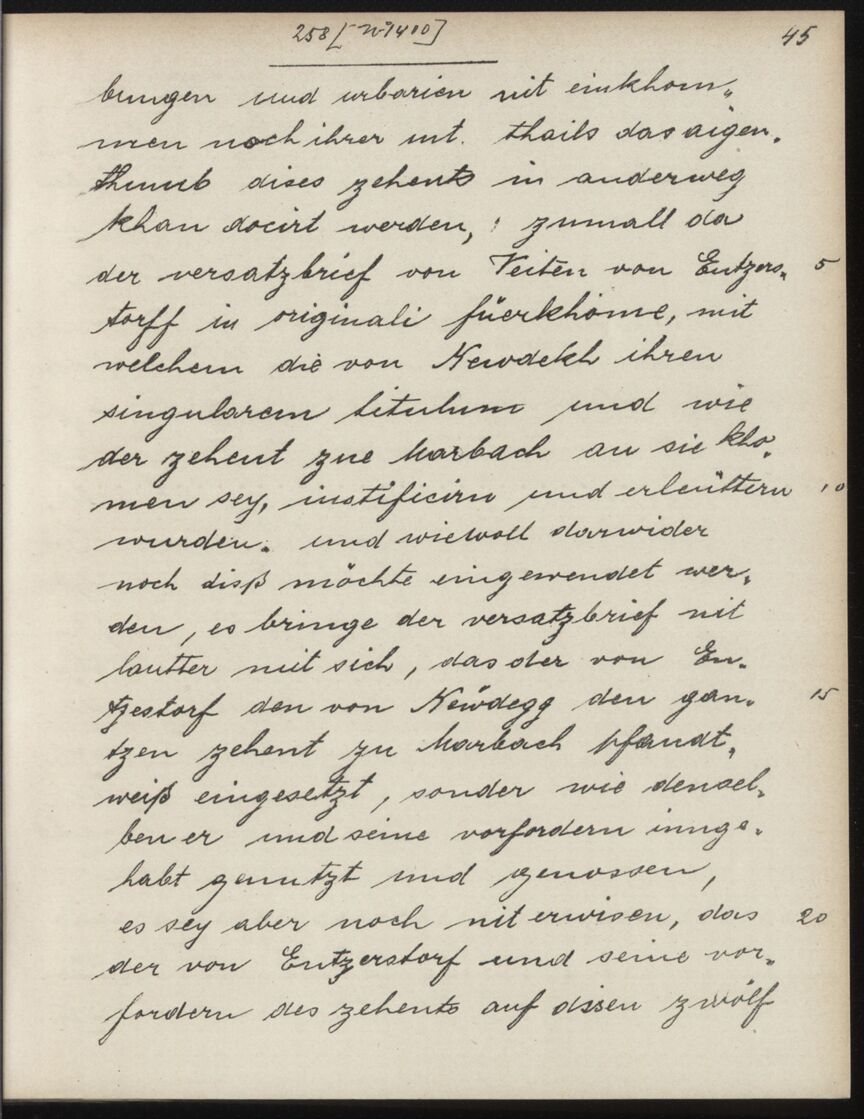 258 [N° 1400] 45
bungen und urbarien nit einkhom„
men noch ihrer int. thails das aigen„
thumb dises zehents in anderweg
khan docirt werden, : zumall da
der versatzbrief von Veiten von Entzers„ 5
torff in originali füerkhome, mit
welchem die von Newdekh ihren
singularem titulum und wie
der zehent zue Marbach an sie kho„
men sey, iustificirn und erleüttern 10
wurden. und wiewoll darwider
noch disß möchte eingewendet wer„
den, es bringe der versatzbrief nit
lautter mit sich, das der von En„
tzestorf den von Newdegg den gan„ 15
tzen zehent zu Marbach pfandt„
weiß eingesetzt, sonder wie densel„
ben er und seine vorfordern innge„
habt genutzt und genossen,
es sey aber noch nit erwisen, das 20
der von Entzerstorf und seine vor„
fordern des zehents auf dissen zwölf